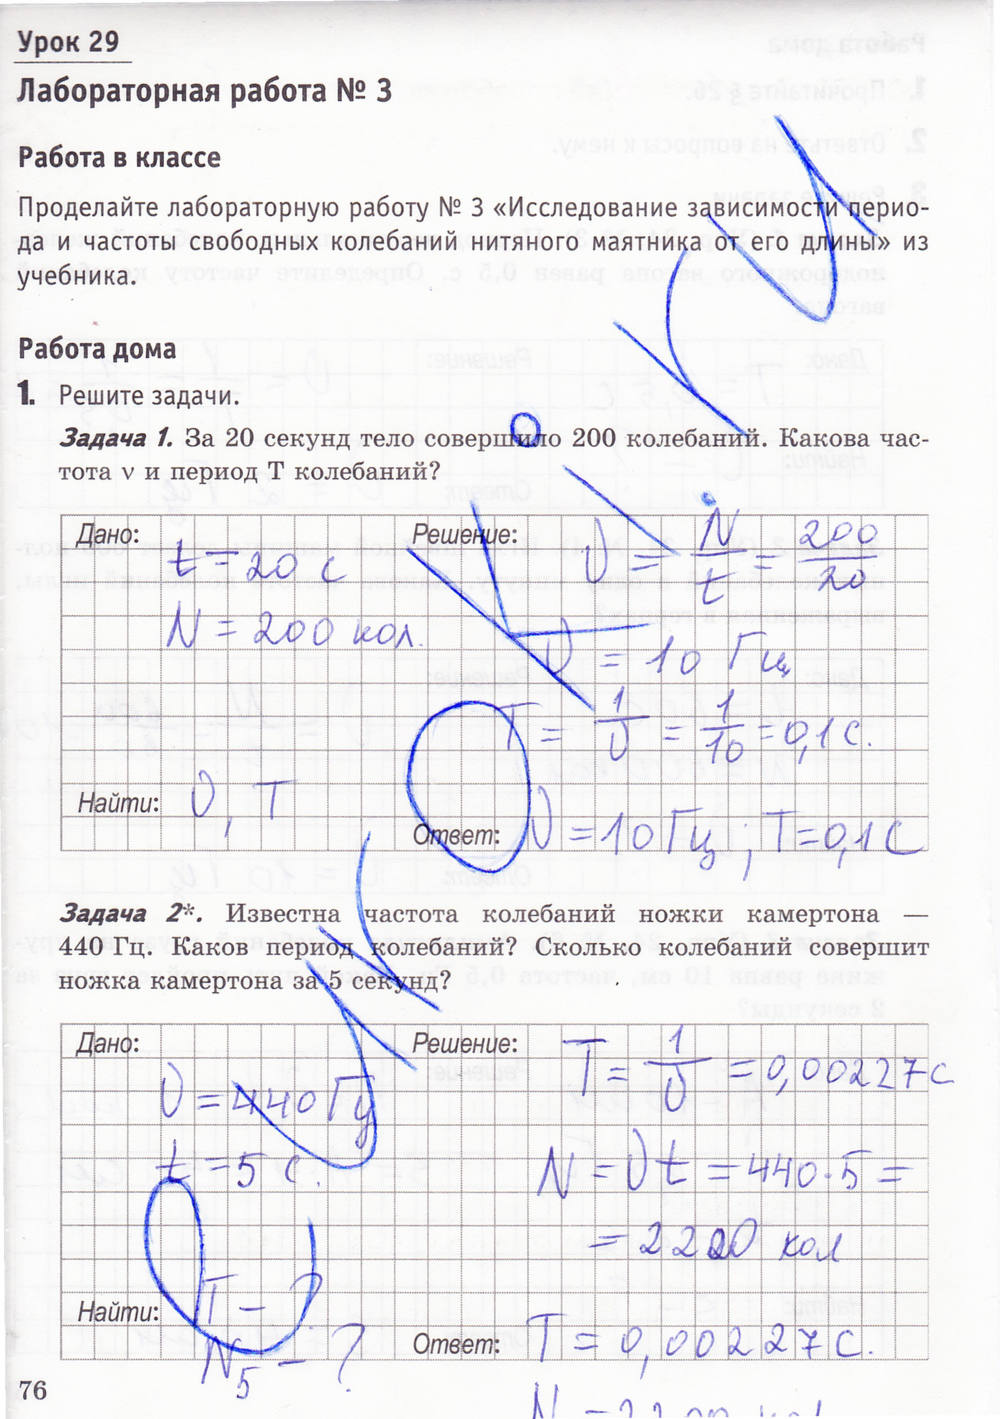 Урок 29
Лабораторная работа № 3
Работа в классе
Проделайте лабораторную работу № 3 «Исследование зависимости перио-
да и частоты свободных колебаний нитяного маятника от его длины» из
учебника.
Работа дома
1. Решите задачи.
Задача 1. За 20 секунд тело совершило 200 колебаний. Какова час-
тота ν и период T колебаний?
Дано:
t = 20 с
N = 200 кол.
Найти: υ, T
Решение: υ = N/t = 200/20
υ = 10 Гц
T = 1/υ = 1/10 = 0,1 с.
Ответ: υ = 10 Гц; T = 0,1 с
Задача 2*. Известна частота колебаний ножки камертона —
440 Гц. Каков период колебаний? Сколько колебаний совершит
ножка камертона за 5 секунд?
Дано:
υ = 440 Гц
t = 5 с.
Найти: T – ?
N5 – ?
Решение: T = 1/υ = 0,00227 с
N = υt = 440·5 =
= 2200 кол
Ответ: T = 0,00227 с.
N = 2200 кол
76